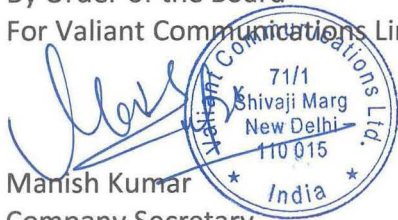 By Order of the Board
For Valiant Communications Lim
Valiant Communications Ltd.
71/1
Shivaji Marg
New Delhi
110 015
* India *
Manish Kumar
Company Secretary